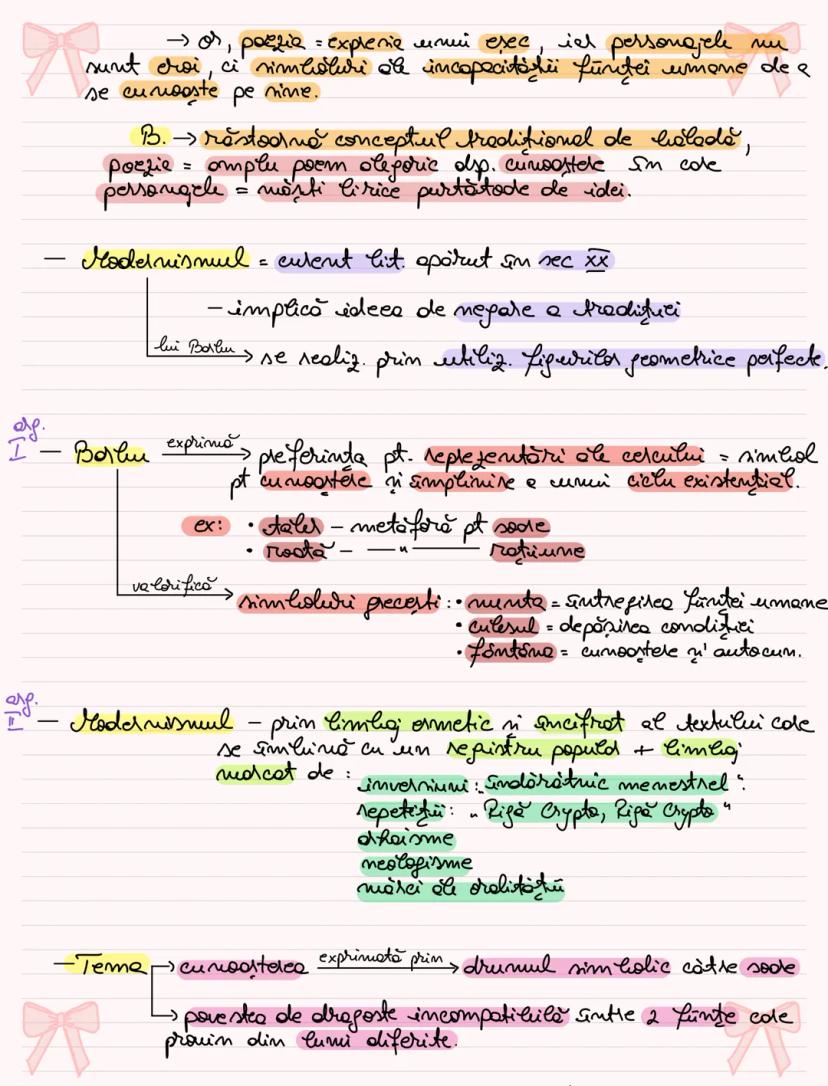 → or, poezia = expresia unui eșec, iar personajele nu
sunt eroi, ci simboluri ale incapacității ființei umane de a
se cunoaște pe sine.
B. → răstoarnă conceptul tradițional de baladă,
poezia = amplu poem alegoric dsp. cunoaștere în care
personajele = măști lirice purtătoare de idei.
— Modernismul = curent lit. apărut în sec XX
- implică ideea de negare a tradiției
lui Barbu → se realiz. prin utiliz. figurilor geometrice perfecte.
asp.
I — Barbu exprimă → preferința pt. reprezentări ale cercului = simbol
pt cunoaștere și împlinire a unui ciclu existențial.
ex: • taler – metaforă pt soare
• roată – —"— rațiune
valorifică → simboluri grecești: • nunta = întregirea ființei umane
• culesul = depășirea condiției
• fântâna = cunoaștere și autocun.
asp.
II — Modernismul – prin limbaj ermetic și încifrat al textului care
se îmbină cu un registru popular + limbaj
marcat de :
inversiuni: „îndărătnic menestrel"
repetiții: „Rigă Crypto, Rigă Crypto"
arhaisme
neologisme
mărci ale oralității
— Tema → cunoașterea exprimată prin → drumul simbolic către soare
→ povestea de dragoste incompatibilă între 2 ființe care
provin din lumi diferite.